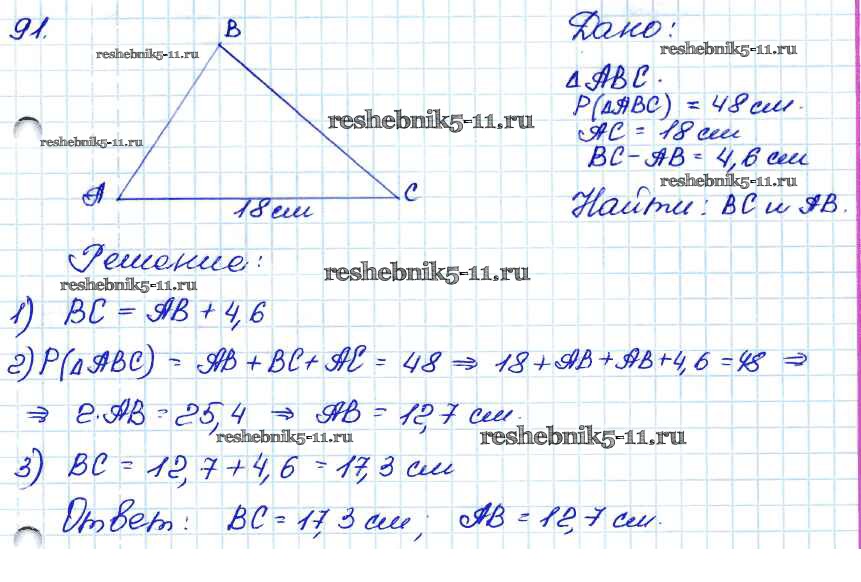 91.
B
reshebnik5-11.ru
reshebnik5-11.ru
reshebnik5-11.ru
A
C
18 см
Дано:
reshebnik5-11.ru
△ABC.
P(△ABC) = 48 см.
AC = 18 см
BC - AB = 4,6 см
reshebnik5-11.ru
Найти: BC и AB.
Решение:
reshebnik5-11.ru
reshebnik5-11.ru
1) BC = AB + 4,6
2) P(△ABC) = AB + BC + AC = 48 ⇒ 18 + AB + AB + 4,6 = 48 ⇒
⇒ 2·AB = 25,4 ⇒ AB = 12,7 см.
reshebnik5-11.ru
reshebnik5-11.ru
3) BC = 12,7 + 4,6 = 17,3 см
Ответ: BC = 17,3 см; AB = 12,7 см.